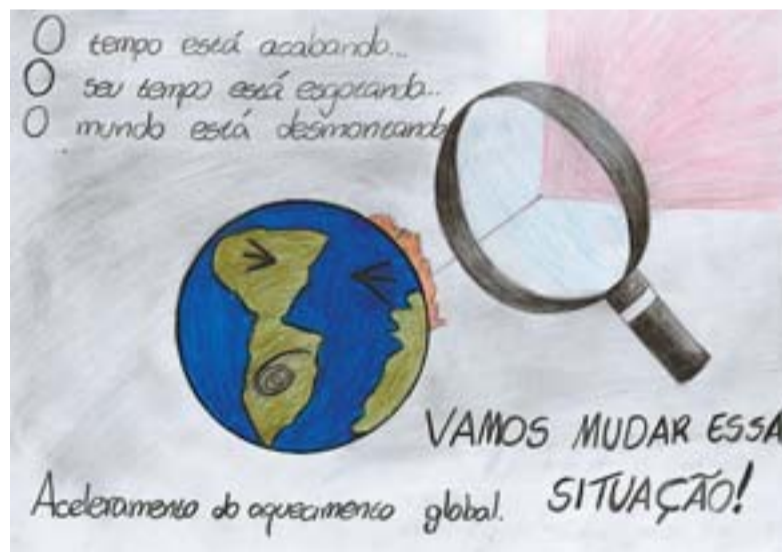 O tempo está acabando...
O seu tempo está esgotando...
O mundo está desmontando
VAMOS MUDAR ESSA
SITUAÇÃO!
Aceleramento do aquecimento global.